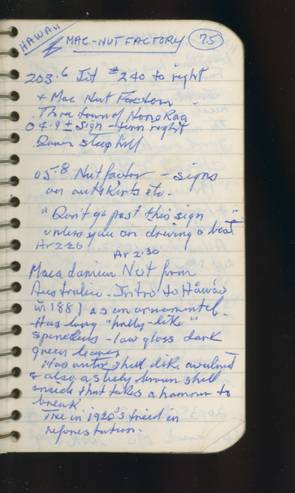 HAWAII
MAC-NUT FACTORY 75
203.6 Jct #240 to right
+ Mac Nut Factory
Thru town of Honokaa
04.9 ± sign - turn right
Down steep hill
05.8 Nut factory - signs
on outskirts etc.
"Don't go past this sign
unless you are driving a boat"
Ar 2:30
Macadamian Nut from
Australia. Intro to Hawaii
in 1881 as an ornamental.
Has long "holly-like"
low gloss dark
green leaves
Has outer shell like walnut
& also a steely brown shell
inside that takes a hammer to
break.
Tree in 1920's tried in
reforestation.